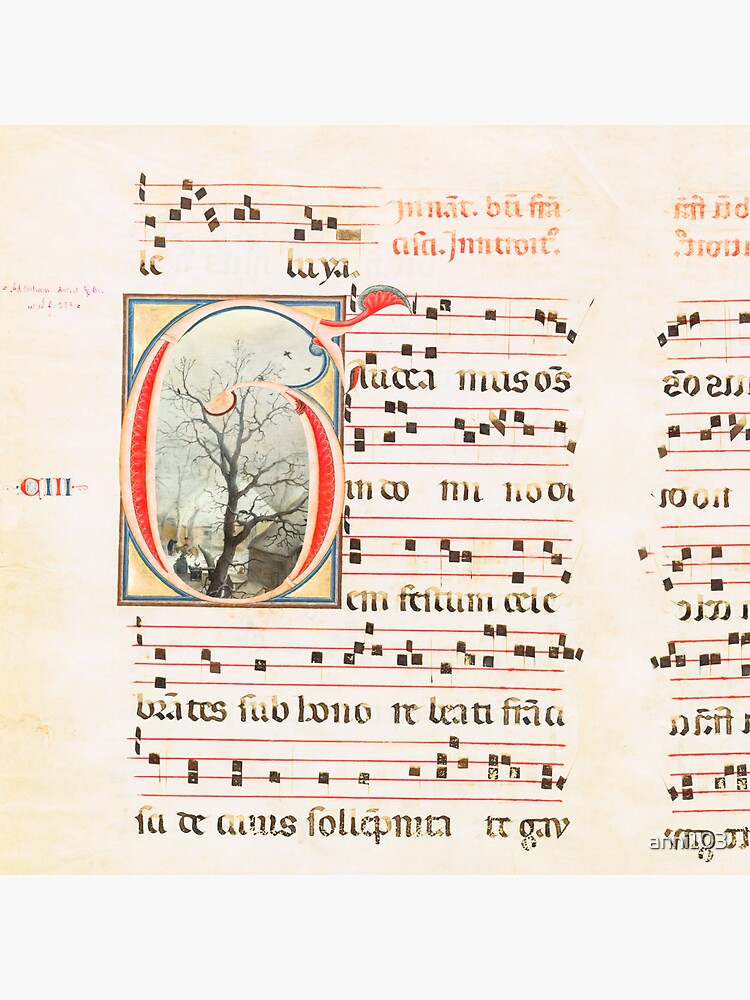 le luya.
In nāt. bti frā
cisci. Introit⁹.
CIII
Gaudea mus oēs
in do mi no di
em festum cele
brātes sub hono re beati frāci
sci de cuius sollēpnita te gau
anni103